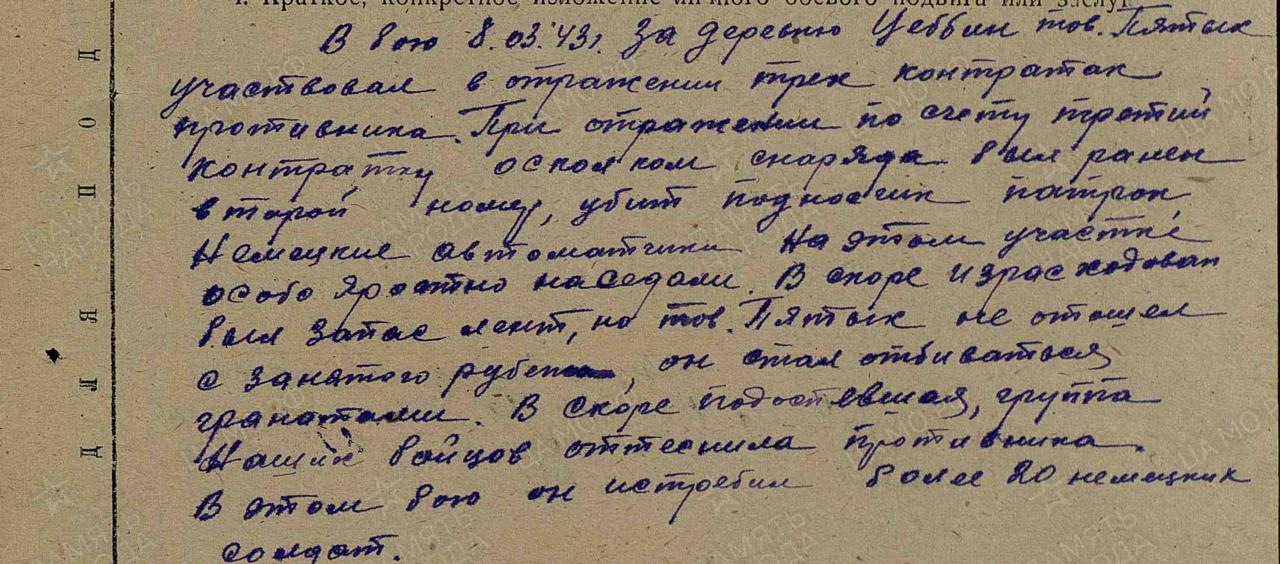 1. Краткое, конкретное изложение личного боевого подвига или заслуг
В бою 8.03.43г. за деревню Цеббин тов. Пятык
участвовал в отражении трех контратак
противника. При отражении по счету третий
контратку осколком снаряда был ранен
второй номер, убит подносчик патрон,
Немецкие автоматчики на этом участке
особо яростно наседали. В скоре израсходован
был запас лент, но тов. Пятык не отошел
с занятого рубежа, он стал отбиваться
гранатами. В скоре подоспевшая, группа
Наших бойцов оттеснила противника.
В этом бою он истребил более 20 немецких
солдат.
ДЛЯ ПОД